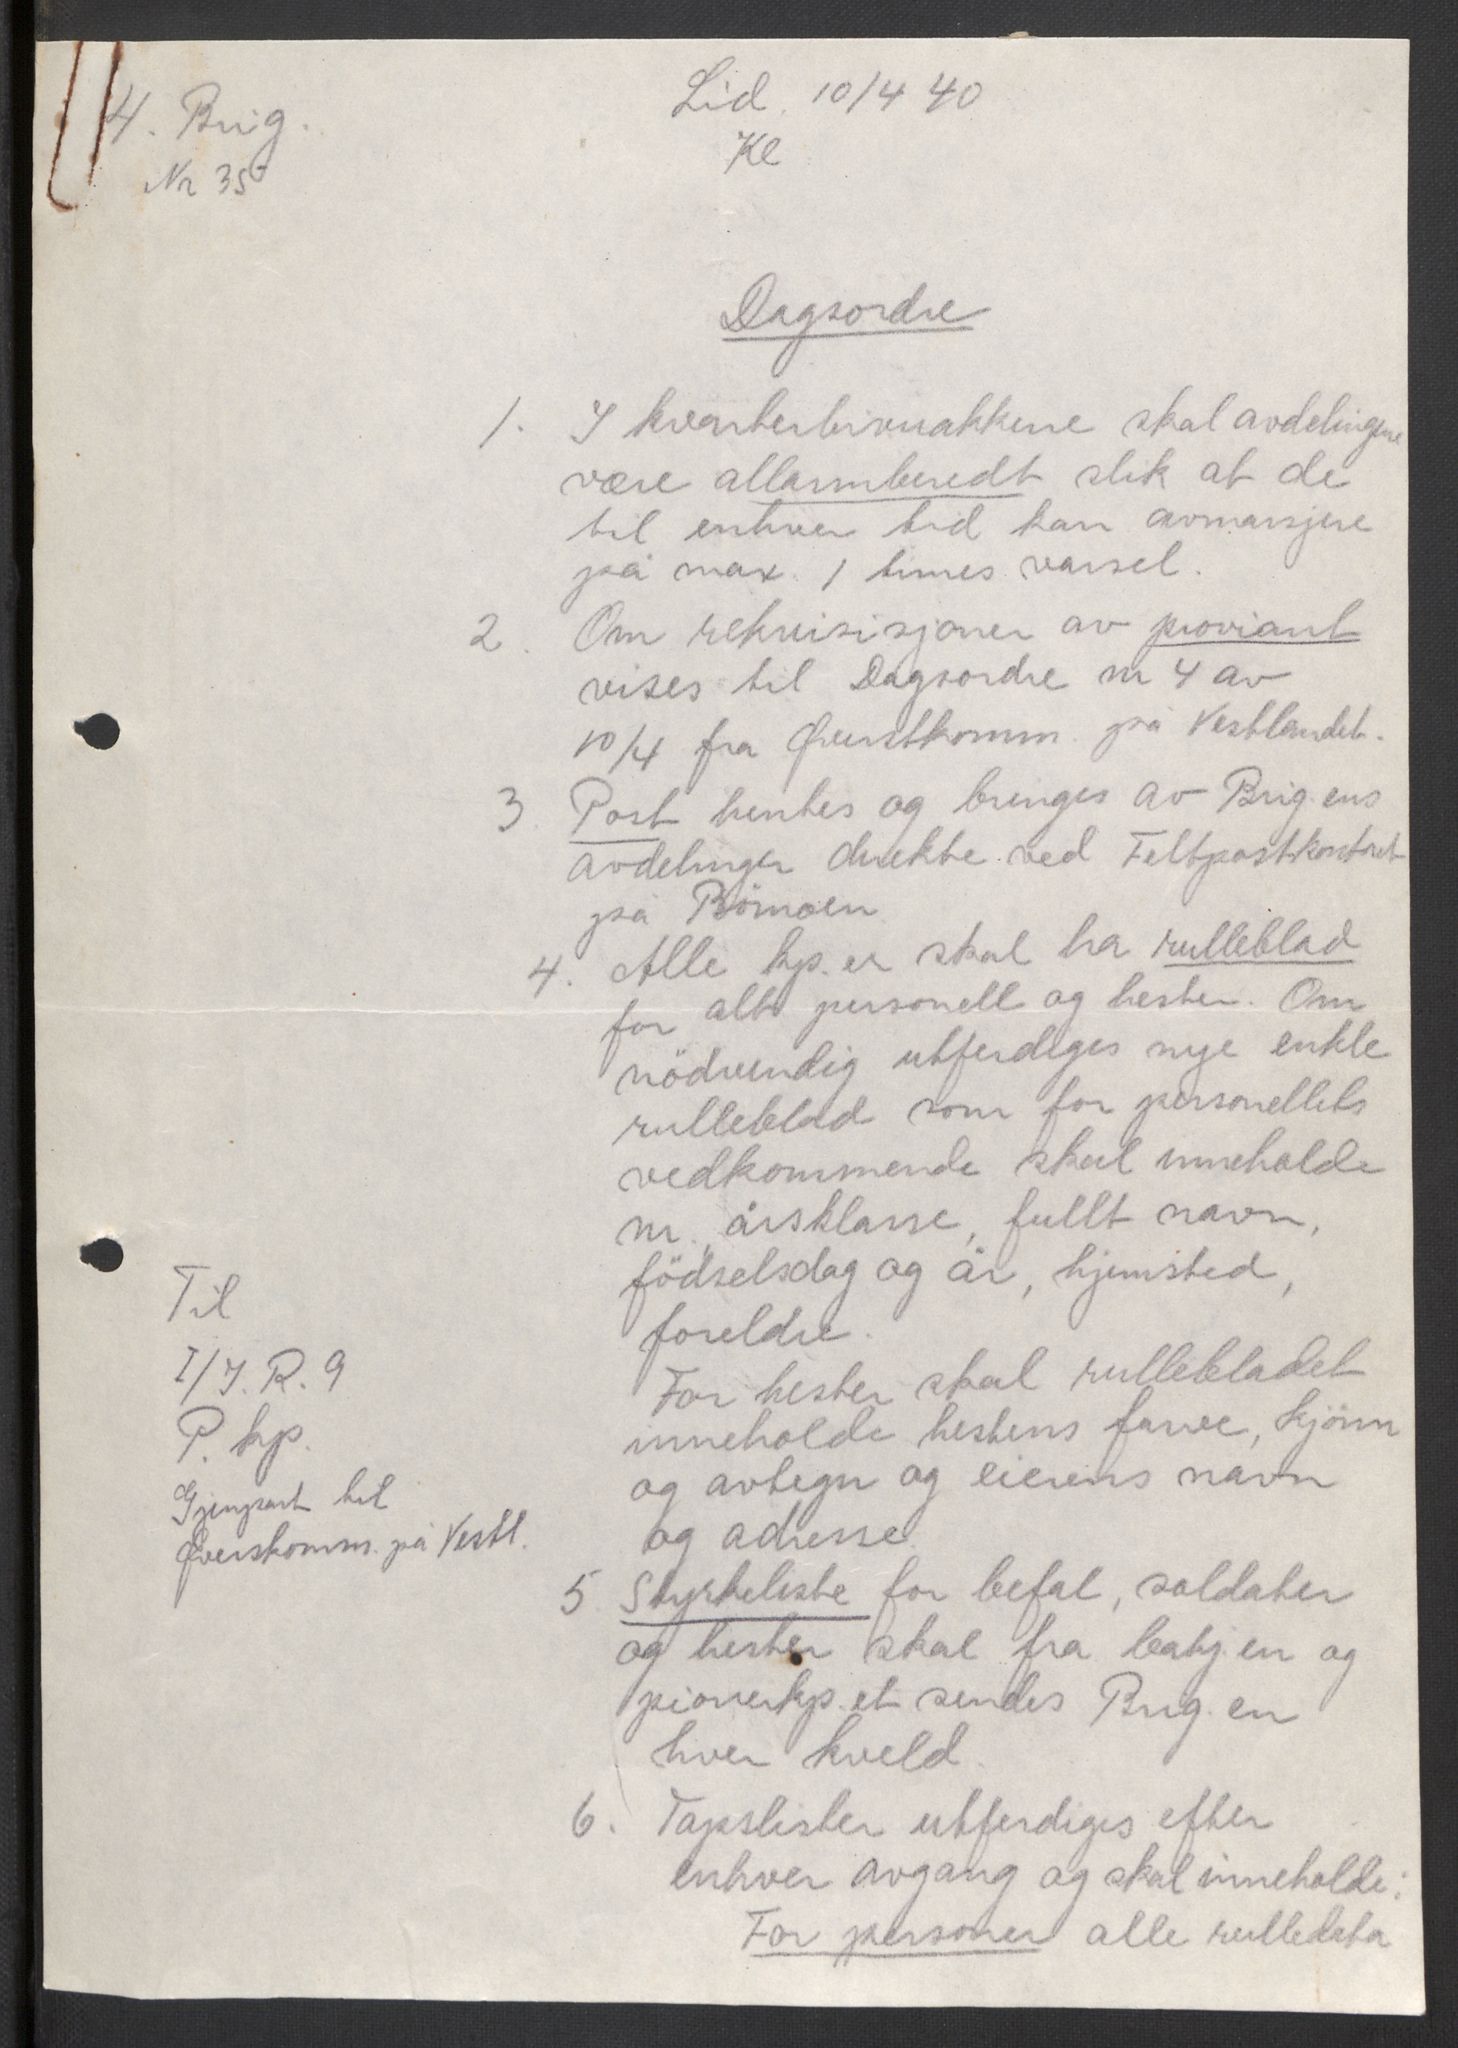 4. Brig.
Nr 35
Lid. 10/4 40
Kl
Dagsordre
1. I kvarterbivuakkene skal avdelingene
være allarmberedt slik at de
til enhver tid kan avmarsjere
på max. 1 times varsel.
2. Om rekvisisjoner av proviant
vises til Dagsordre nr 4 av
10/4 fra Øverstkomm. på Vestlandet.
3. Post hentes og bringes av Brig.ens
avdelinger direkte ved Feltpostkontoret
på Bömoen
4. Alle kp.er skal ha rulleblad
for alt personell og hester. Om
nödvendig utferdiges nye enkle
rulleblad som for personellets
vedkommende skal inneholde
nr., årsklasse, fullt navn,
födselsdag og år, hjemsted,
foreldre.
For hester skal rullebladet
inneholde hestens farve, kjönn
og avtegn og eierens navn
og adresse.
5 Styrkeliste for befal, soldater
og hester skal fra batj.en og
pionerkp.et sendes Brig.en
hver kveld.
6. Tapslister utferdiges efter
enhver avgang og skal inneholde:
For personer alle rulledata
Til
I/I.R. 9
P. kp.
Gjenpart til
Øverskomm. på Vestl.